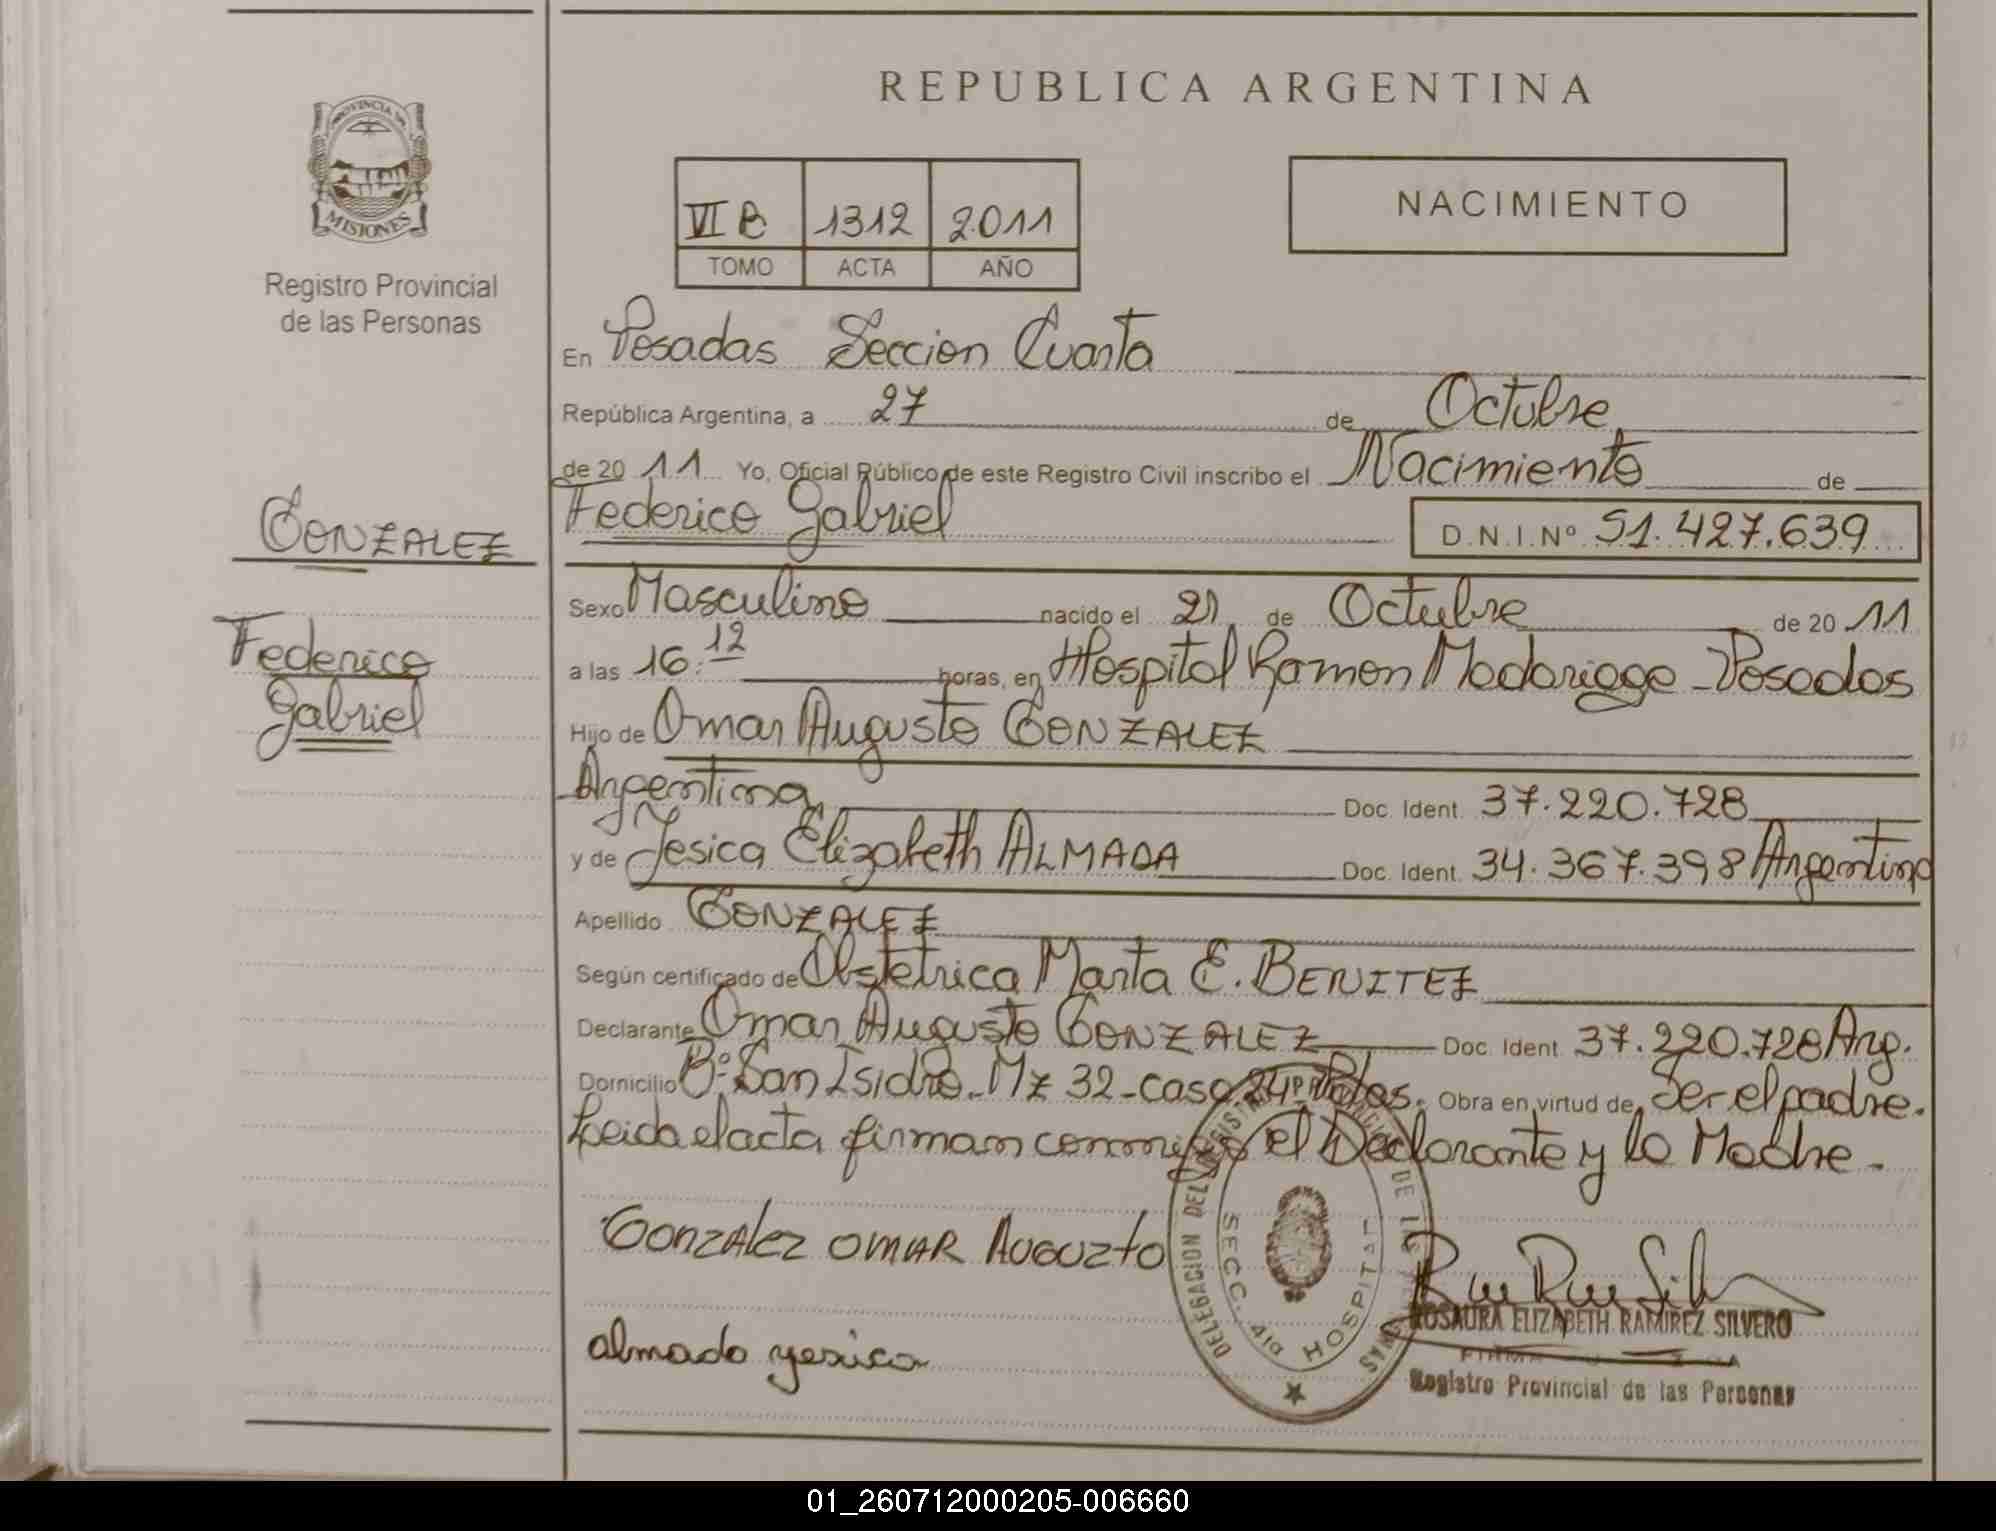 REPUBLICA ARGENTINA
PROVINCIA DE
MISIONES
Registro Provincial
de las Personas
NACIMIENTO
VI B 1312 2011
TOMO ACTA AÑO
En Posadas Seccion Cuarta
República Argentina, a 27 de Octubre
de 20 11 Yo, Oficial Público de este Registro Civil inscribo el Nacimiento de
Federico Gabriel D.N.I.Nº 51.427.639
GONZALEZ
Federico
Gabriel
Sexo Masculino nacido el 21 de Octubre de 20 11
a las 16:12 horas, en Hospital Ramon Madariaga - Posadas
Hijo de Omar Augusto GONZALEZ
Argentina Doc. Ident. 37.220.728
y de Jesica Elizabeth ALMADA Doc. Ident. 34.367.398 Argentina
Apellido GONZALEZ
Según certificado de Obstetrica Marta E. BENITEZ
Declarante Omar Augusto GONZALEZ Doc. Ident. 37.220.728 Arg.
Domicilio Bº San Isidro - Mz 32 - casa 24 - Pdas. Obra en virtud de Ser el padre.
Leida el acta firman conmigo el Declarante y la Madre.
GONZALEZ OMAR AUGUZTO
almada yesica
DELEGACION DEL REGISTRO PROVINCIAL DE LAS
SECC. 4ta HOSPITAL
ROSAURA ELIZABETH RAMIREZ SILVERO
Registro Provincial de las Personas
01_260712000205-006660